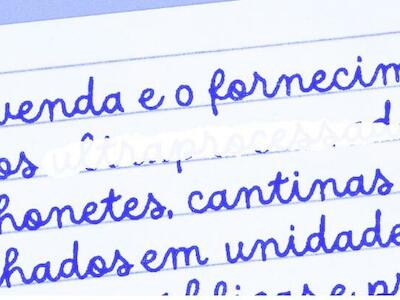 venda e o fornecim
os ultraprocessad
honetes, cantinas
hados em unidade